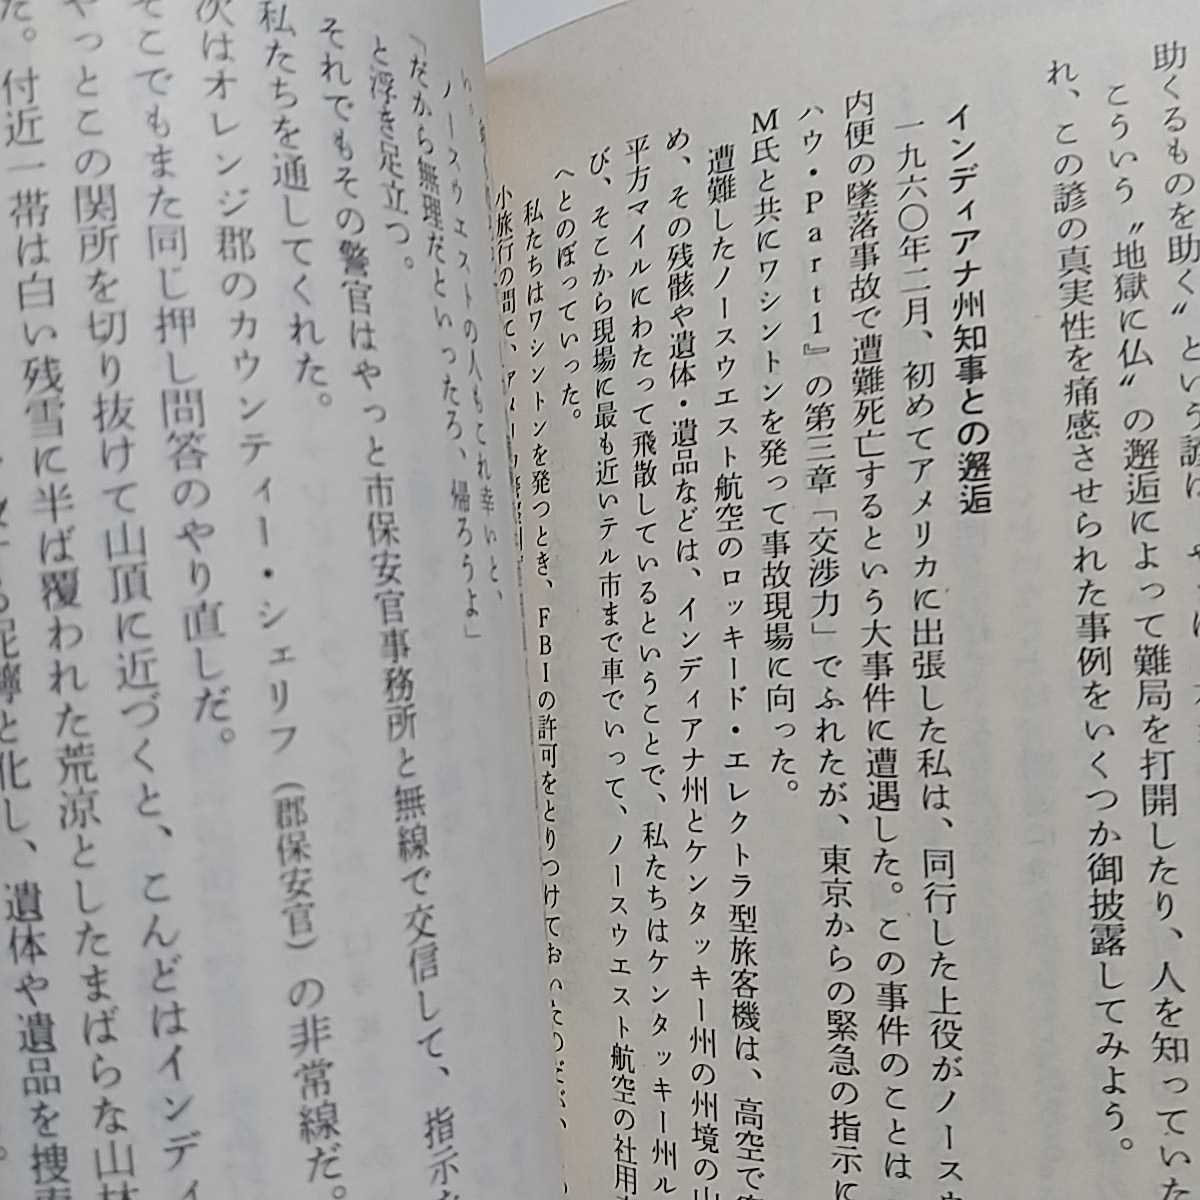 助くるものを助く〟という諺
こういう〝地獄に仏〟の邂逅によって難局を打開したり、人を知っていた
れ、この諺の真実性を痛感させられた事例をいくつか御披露してみよう。
インディアナ州知事との邂逅
一九六〇年二月、初めてアメリカに出張した私は、同行した上役がノースウ
内便の墜落事故で遭難死亡するという大事件に遭遇した。この事件のことは
ハウ・Part1』の第三章「交渉力」でふれたが、東京からの緊急の指示に
M氏と共にワシントンを発って事故現場に向った。
遭難したノースウエスト航空のロッキード・エレクトラ型旅客機は、高空で
め、その残骸や遺体・遺品などは、インディアナ州とケンタッキー州の州境の山
平方マイルにわたって飛散しているということで、私たちはケンタッキー州ル
び、そこから現場に最も近いテル市まで車でいって、ノースウエスト航空の社用
へとのぼっていった。
私たちはワシントンを発つとき、FBIの許可をとりつけておいたのだが、
小旅行の間で、
ノースウエストの人もこれ幸いと、
「だから無理だといったろ、帰ろうよ」
と浮き足立つ。
それでもその警官はやっと市保安官事務所と無線で交信して、指示を
私たちを通してくれた。
次はオレンジ郡のカウンティー・シェリフ(郡保安官)の非常線だ。
そこでもまた同じ押し問答のやり直しだ。
やっとこの関所を切り抜けて山頂に近づくと、こんどはインディ
た。付近一帯は白い残雪に半ば覆われた荒涼としたまばらな山林
と化し、遺体や遺品を捜索